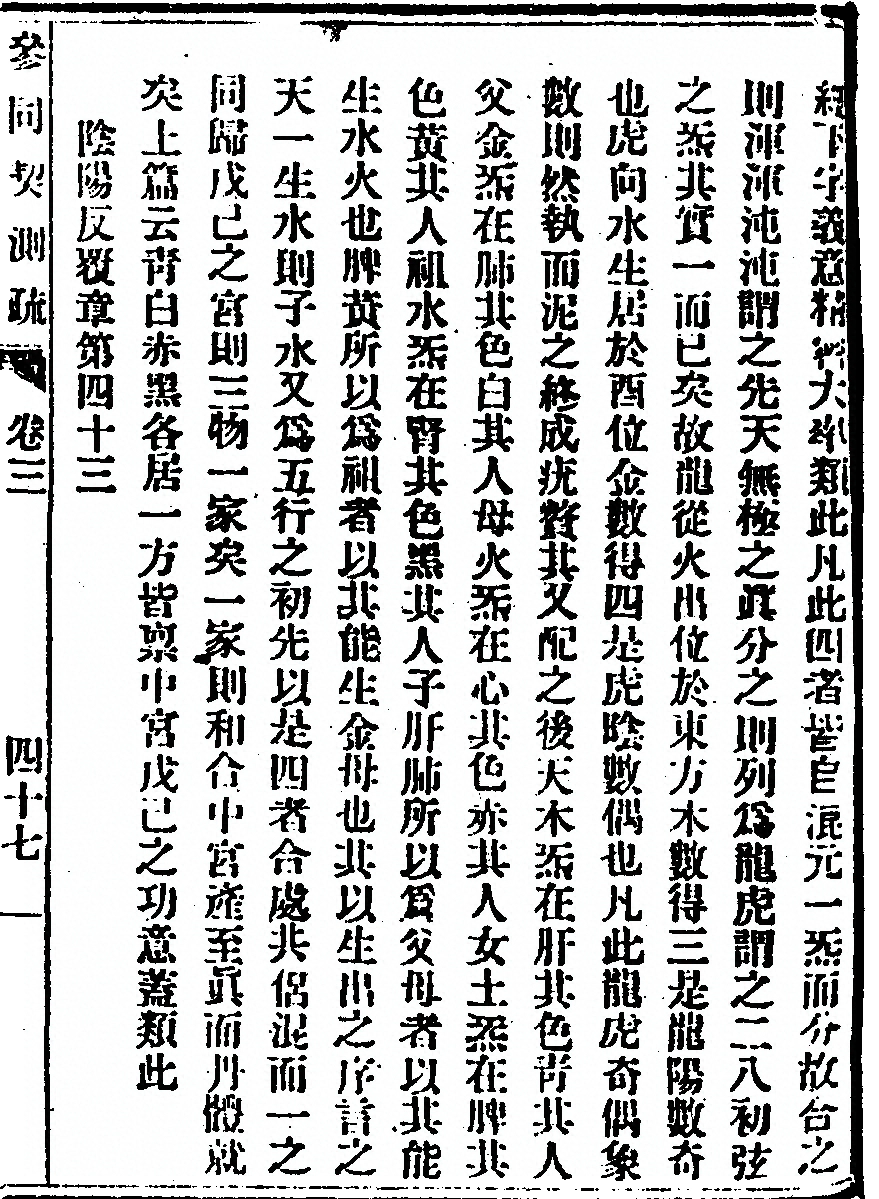 經下字義意精 大率類此凡此四者皆自混元一炁而分故合之
則渾渾沌沌謂之先天無極之眞分之則列爲龍虎謂之二八初弦
之炁其實一而已矣故龍從火出位於東方木數得三是龍陽數奇
也虎向水生居於酉位金數得四是虎陰數偶也凡此龍虎奇偶象
數則然執而泥之終成疣贅其又配之後天木炁在肝其色青其人
父金炁在肺其色白其人母火炁在心其色赤其人女土炁在脾其
色黄其人祖水炁在腎其色黑其人子肝肺所以爲父母者以其能
生水火也脾黄所以爲祖者以其能生金母也其以生出之序言之
天一生水則子水又爲五行之初先以是四者合處共侶混而一之
同歸戊己之宮則三物一家矣一家則和合中宮産至眞而丹體就
矣上篇云青白赤黑各居一方皆禀中宮戊己之功意蓋類此
陰陽反覆章第四十三
參同契測疏 卷三 四十七